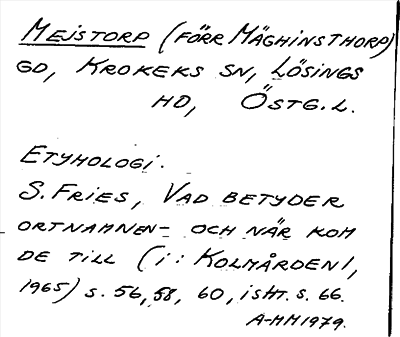 MEJSTORP (FÖRR MÄGHINSTHORP)
GD, KROKEKS SN, LÖSINGS
HD, ÖSTG.L.
ETYMOLOGI.
S. FRIES, VAD BETYDER
ORTNAMNEN - OCH NÄR KOM
DE TILL (i: KOLMÅRDEN 1,
1965) s. 56, 58, 60, isht. s. 66.
A-MM 1979.